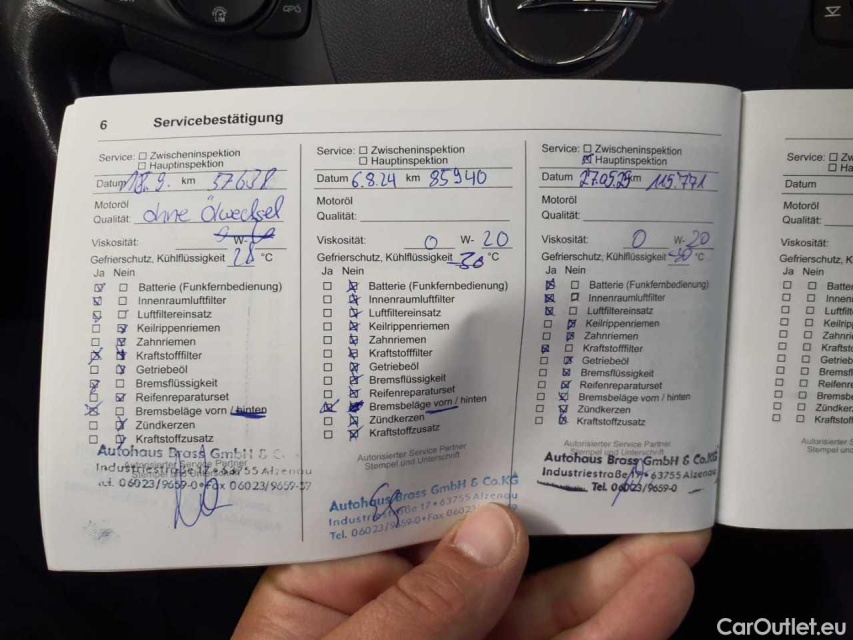 6 Servicebestätigung
Service: ☐ Zwischeninspektion
☐ Hauptinspektion
Datum 18.9. km 57638
Motoröl
Qualität: ohne Ölwechsel
Viskosität: W-
Gefrierschutz, Kühlflüssigkeit 28 °C
Ja Nein
Batterie (Funkfernbedienung)
Innenraumluftfilter
Luftfiltereinsatz
Keilrippenriemen
Zahnriemen
Kraftstofffilter
Getriebeöl
Bremsflüssigkeit
Reifenreparaturset
Bremsbeläge vorn / hinten
Zündkerzen
Kraftstoffzusatz
Autorisierter Service Partner
Autohaus Brass GmbH & C
Industriestraße 17 • 63755 Alzenau
Tel. 06023/9659-0 • Fax 06023/9659-37
Service: ☐ Zwischeninspektion
☐ Hauptinspektion
Datum 6.8.24 km 85940
Motoröl
Qualität:
Viskosität: 0 W- 20
Gefrierschutz, Kühlflüssigkeit -30 °C
Ja Nein
Batterie (Funkfernbedienung)
Innenraumluftfilter
Luftfiltereinsatz
Keilrippenriemen
Zahnriemen
Kraftstofffilter
Getriebeöl
Bremsflüssigkeit
Reifenreparaturset
Bremsbeläge vorn / hinten
Zündkerzen
Kraftstoffzusatz
Autorisierter Service Partner
Stempel und Unterschrift
Autohaus Brass GmbH & Co.KG
Industriestraße 17 • 63755 Alzenau
Tel. 06023/9659-0 • Fax 06023
Service: ☐ Zwischeninspektion
☒ Hauptinspektion
Datum 27.05.25 km 115771
Motoröl
Qualität:
Viskosität: 0 W- 20
Gefrierschutz, Kühlflüssigkeit -30 °C
Ja Nein
Batterie (Funkfernbedienung)
Innenraumluftfilter
Luftfiltereinsatz
Keilrippenriemen
Zahnriemen
Kraftstofffilter
Getriebeöl
Bremsflüssigkeit
Reifenreparaturset
Bremsbeläge vorn / hinten
Zündkerzen
Kraftstoffzusatz
Autorisierter Service Partner
Stempel und Unterschrift
Autohaus Brass GmbH & Co.KG
Industriestraße 17 • 63755 Alzenau
Tel. 06023/9659-0
Service: ☐ Zw
☐ Ha
Datum
Motoröl
Qualität:
Viskosität:
Gefrierschutz, K
Ja Nein
Batte
Innen
Luftfilt
Keilrip
Zahnri
Kraftst
Getrieb
Bremsfl
Reifenre
Bremsbe
Zündker
Kraftstof
Autorisierter S
Stempel un
CarOutlet.eu